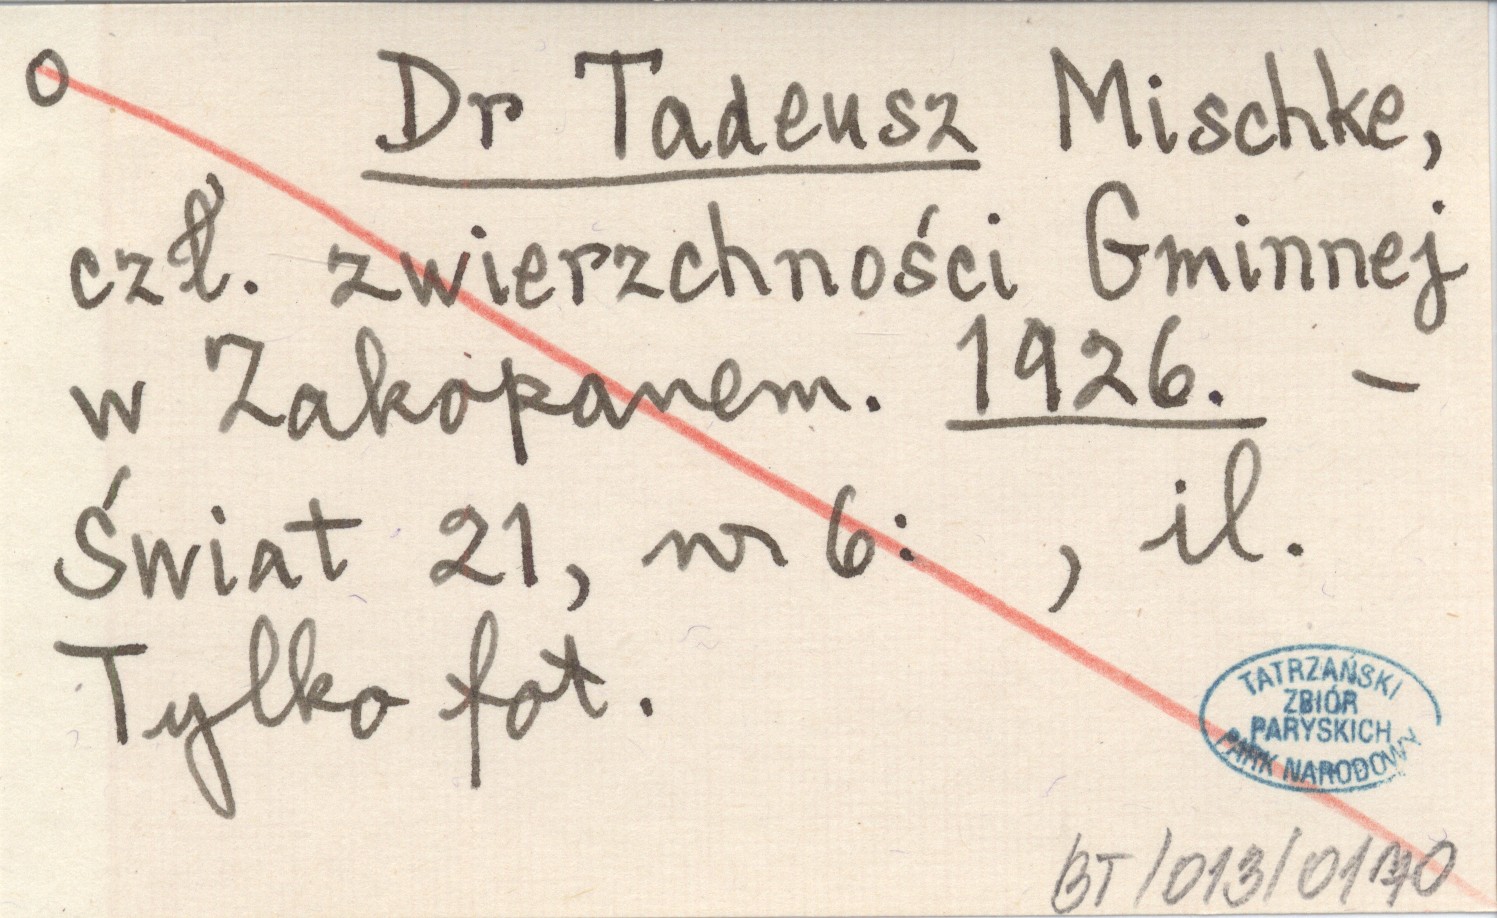 o Dr Tadeusz Mischke,
czł. zwierzchności Gminnej
w Zakopanem. 1926. –
Świat 21, nr 6: , il.
Tylko fot.
TATRZAŃSKI
ZBIÓR
PARYSKICH
PARK NARODOWY